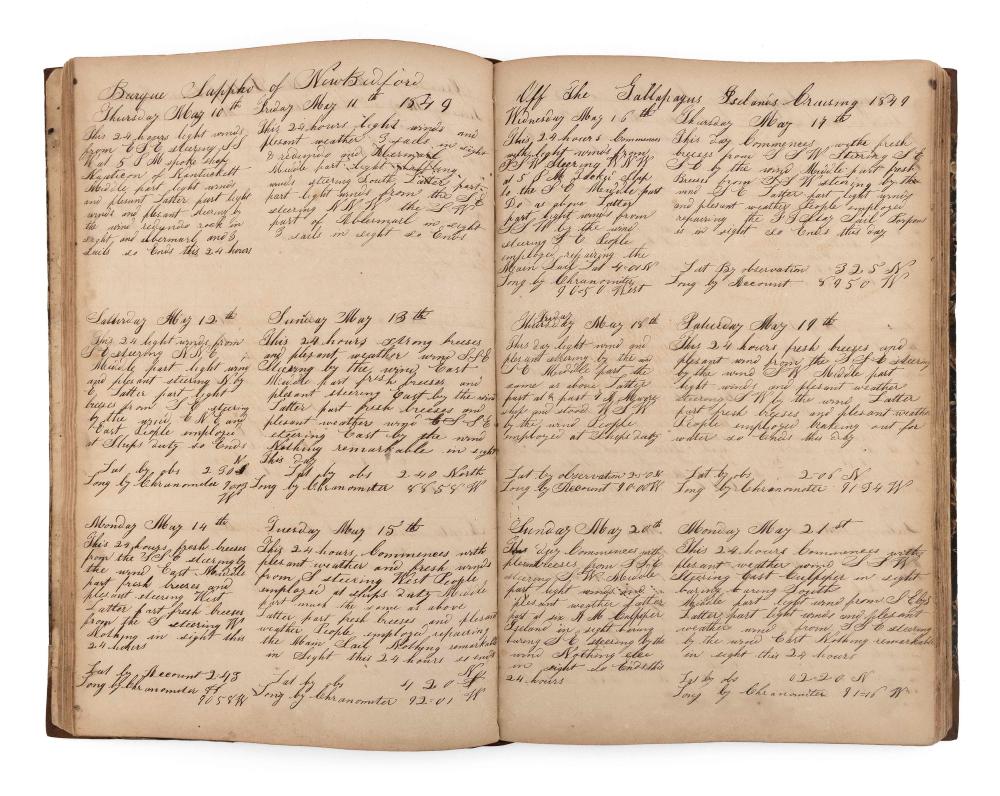 Barque Sappho of New Bedford
Thursday May 10th
This 24 hours light winds
from E S E steering S S
W at 5 P M spoke ship
of Nantuckett
Middle part light winds
and plesant Latter part light
winds and plesant steering by
the wind redundo rock in
sight, and Abermarl and 3
sails so Ends this 24 hours
Friday May 11th 1849
This 24 hours light winds and
plesant weather 3 sails in sight
& redundo and Abermarl
Middle part light
winds steering South Latter part
part light winds from the S E
steering N W W the S W
part of Abermarl in sight
3 sails in sight so Ends
Satturday May 12th
This 24 light winds from
S E steering N N E
Middle part light wind
and plesant steering N by
E Latter part light
breeses from S E steering
by the wind E N E and
East People employed
at Ships duty so Ends
Lat by obs 2-30 N
Long by Chranometer 90 03
W
Sunday May 13th
This 24 hours strong breeses
and plesant weather wind S S E
Steering by the wind East
Middle part fresh breeses and
plesant steering East by the wind
Latter part fresh breeses and
plesant weather wind E S S E
steering East by the wind
Nothing remarkable in sight
This day
Lat by obs 2-40 North
Long by Chranometer 88 58 W
Monday May 14th
This 24 hours fresh breeses
from the S S E steering by
the wind East Middle
part fresh breeses and
plesant steering West
Latter part fresh breeses
from the S steering W
Nothing in sight this
24 hours
Lat by Account 2-43
Long by Chranometer
90 58 W
Tuesday May 15th
This 24 hours Commences with
plesant weather and fresh winds
from S steering West People
employed at ships duty Middle
part much the same as above
Latter part fresh breeses and plesant
weather People employed repairing
the Main Sail Nothing remarkable
in Sight this 24 hours so ends
Lat by obs 4 20 N
Long by Chranometer 92-01 W
Off The Gallapagus Iselands Cruising 1849
Wednesday May 16th
This 24 hours Commences
with light winds from
S S W Steering W N W
at 5 P M ship
to the S E Middle part
Do as above Latter
part light winds from
S S W by the wind
steering S E People
employed repairing the
Main Sail Lat 4-01 N
Long by Chranometer
90-50 West
Thursday May 17th
This day Commences with fresh
breeses from S S W Steering S E
& E by the wind Middle part fresh
Breeses from S S W steering by the
wind S E Latter part light winds
and plesant weather People employed
repairing the Sail
is in sight so Ends this day
Lat By observation 3 25 N
Long by Account 89 50 W
Friday May 18th
This day light wind and
plesant steering by the wind
S E Middle part the
same as above Latter
part at past 4
ship and stood W S W
by the wind People
employed at Ships duty
Lat by observation 2-50 N
Long by Account 90-00 W
Saturday May 19th
This 24 hours fresh breeses and
plesant wind from the S S E steering
by the wind S W Middle part
light winds and plesant weather
steering S W by the wind Latter
part fresh breeses and plesant weather
People employed braking out for
water so Ends this day
Lat by obs 2-06 N
Long by Chranometer 91 34 W
Sunday May 20th
This day Commences with
plesant breeses from S S E
steering S W Middle
part light winds and
plesant weather Latter
part at six A M Culpper
Iseland in sight baring
baring S E steering by the
wind Nothing else
in sight so Ends this
24 hours
Monday May 21st
This 24 hours Commences with
plesant weather wind S S W
Steering East Culpper in sight
baring baring South
Middle part light wind from S E by S
Latter part light winds and plesant
weather wind from S S E steering
by the wind East Nothing remarkable
in sight this 24 hours
Lat by obs 02-20 N
Long by Chranometer 91-16 W